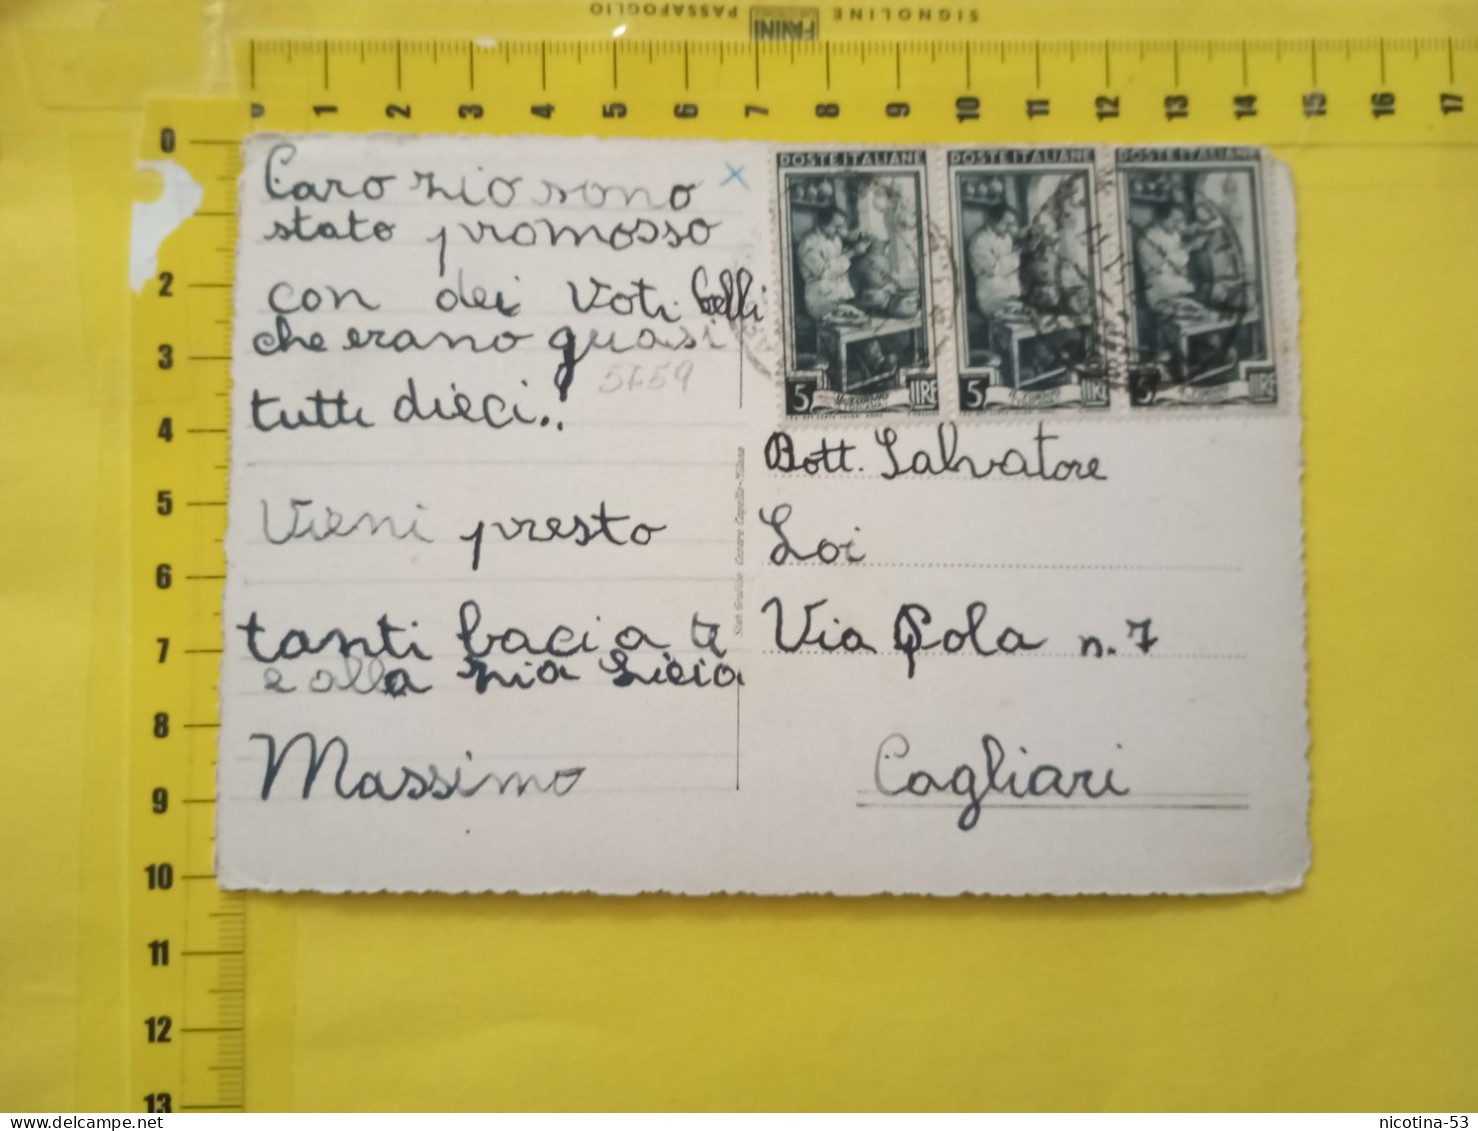 SIGNOLINE PASSAFOGLIO
FANINI
0 1 2 3 4 5 6 7 8 9 10 11 12 13 14 15 16 17
0
2
3
4
5
6
7
8
9
10
11
12
13
Caro zio sono
stato promosso
con dei voti belli
che erano quasi
tutti dieci..
5659
Vieni presto
tanti baci a te
e alla zia Licia
Massimo
Stab Grafico Cesare Capello-Milano
POSTE ITALIANE POSTE ITALIANE POSTE ITALIANE
5 LIRE 5 LIRE 5 LIRE
Dott. Salvatore
Loi
Via Pola n. 7
Cagliari
nicotina-53